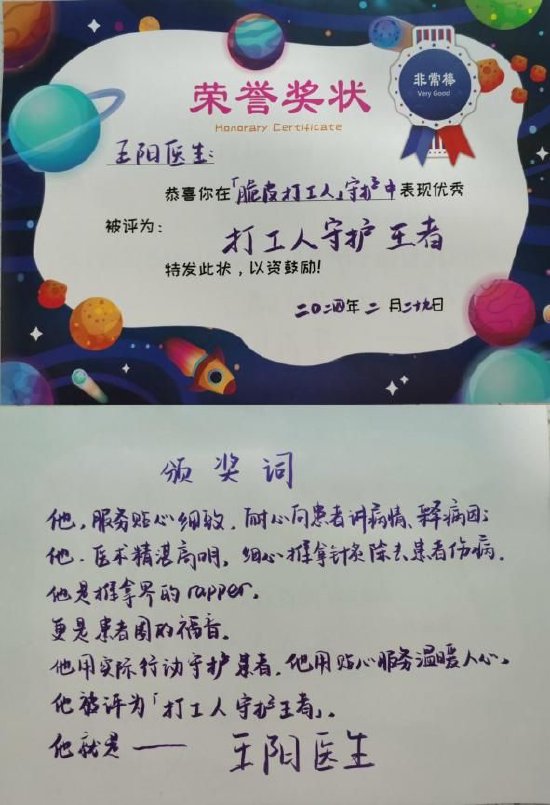 荣誉奖状
Honorary Certificate
非常棒
Very Good
王阳医生:
恭喜你在「脆皮打工人」守护中表现优秀
被评为:
打工人守护王者
特发此状,以资鼓励!
二〇二四年二月二十九日
颁奖词
他,服务贴心细致,耐心向患者讲病情、释病因;
他,医术精湛高明,细心推拿针灸除去患者伤病。
他是推拿界的rapper。
更是患者圈的福音。
他用实际行动守护患者,他用贴心服务温暖人心。
他被评为「打工人守护王者」。
他就是——王阳医生